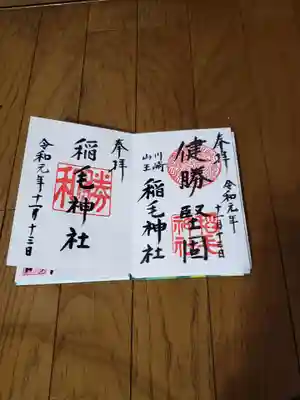 奉拝
健勝堅固
川崎
山王
稲毛神社
令和元年
十一月十三日
奉拝
稲毛神社
令和元年十一月十三日